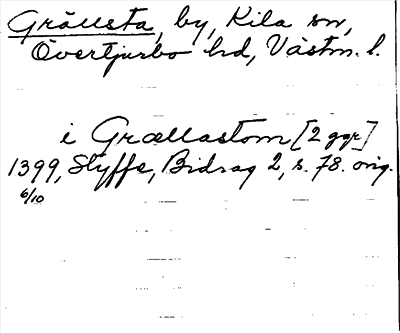 Grällsta, by, Kila sn,
Övertjurbo hd, Västm. l.
i Grællastom [2 ggr]
1399, Styffe, Bidrag 2, s. 78. orig.
6/10